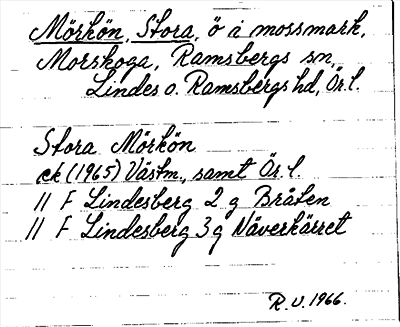 Mörkön, Stora, ö i mossmark,
Morskoga, Ramsbergs sn,
Lindes o. Ramsbergs hd, Ör. l.
Stora Mörkön
ek (1965) Västm., samt Ör. l.
11 F Lindesberg 2 g Bråten
11 F Lindesberg 3 g Näverkärret
R. V. 1966.